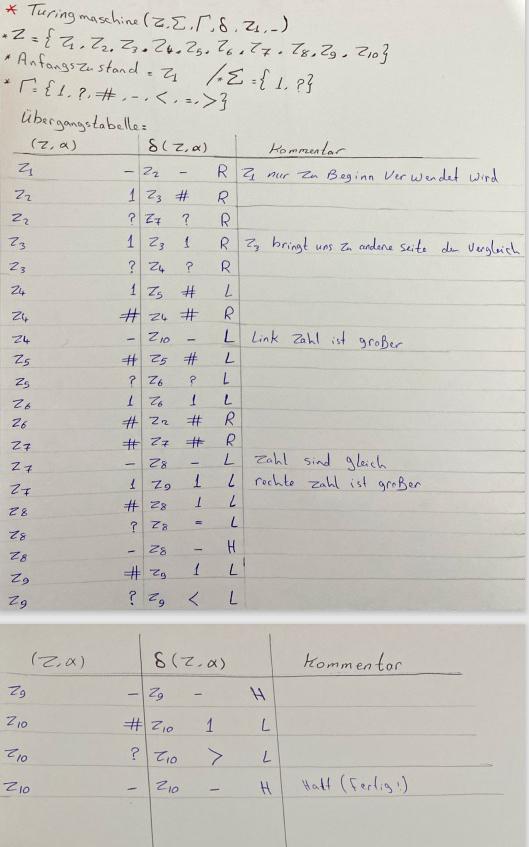 * Turingmaschine (Z, Σ, Γ, δ, Z1, -)
* Z = {Z1, Z2, Z3, Z4, Z5, Z6, Z7, Z8, Z9, Z10}
* Anfangszustand = Z1 /* Σ = {1, ?}
* Γ = {1, ?, #, -, <, =, >}
Übergangstabelle:
(Z, α) δ(Z, α) Kommentar
Z1 - Z2 - R Z1 nur zu Beginn Verwendet wird
Z2 1 Z3 # R
Z2 ? Z7 ? R
Z3 1 Z3 1 R Z3 bringt uns zu andere seite der Vergleich
Z3 ? Z4 ? R
Z4 1 Z5 # L
Z4 # Z4 # R
Z4 - Z10 - L Link Zahl ist großer
Z5 # Z5 # L
Z5 ? Z6 ? L
Z6 1 Z6 1 L
Z6 # Z2 # R
Z7 # Z7 # R
Z7 - Z8 - L Zahl sind gleich
Z7 1 Z9 1 L rechte Zahl ist großer
Z8 # Z8 1 L
Z8 ? Z8 = L
Z8 - Z8 - H
Z9 # Z9 1 L
Z9 ? Z9 < L
(Z, α) δ(Z, α) Kommentar
Z9 - Z9 - H
Z10 # Z10 1 L
Z10 ? Z10 > L
Z10 - Z10 - H Halt (Fertig!)